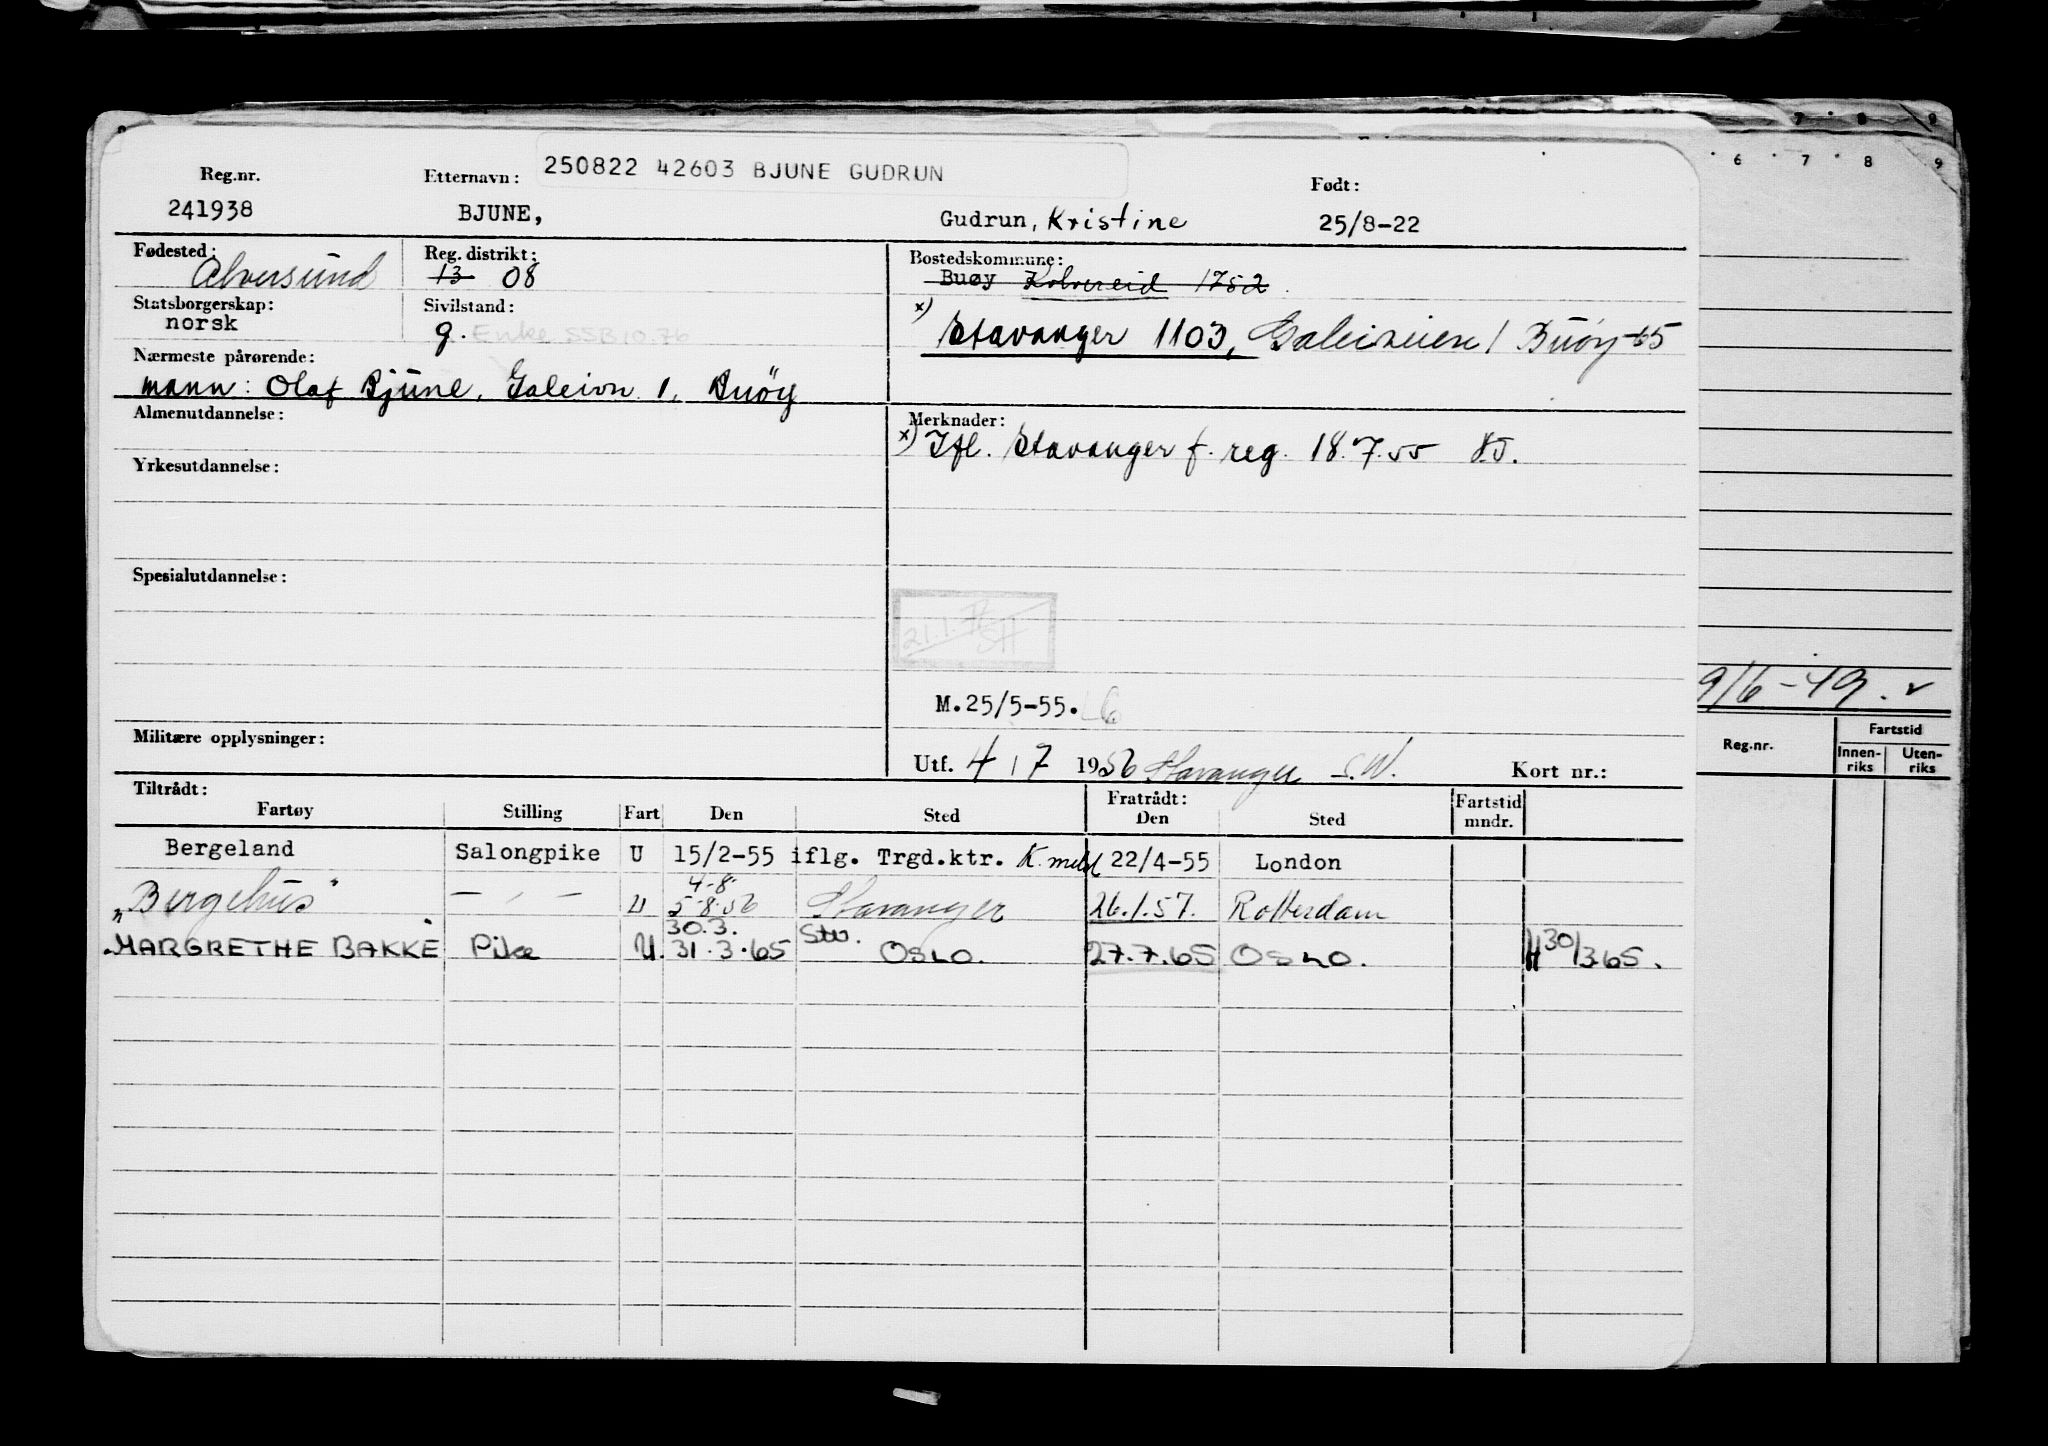 7 8 9
6 7 8 9
Reg.nr. Etternavn: 250822 42603 BJUNE GUDRUN Født:
241938 BJUNE, Gudrun, Kristine 25/8-22
Fødested: Alversund Reg. distrikt: 13 08 Bostedskommune: Buøy Kolvereid 1752
Statsborgerskap: norsk Sivilstand: g. Enke SSB 10.76 x) Stavanger 1103, Galeiveien 1 Buøy -65
Nærmeste pårørende:
mann: Olaf Bjune, Galeivn. 1, Buøy
Almenutdannelse: Merknader:
x) Ifl. Stavanger f. reg. 18.7.55
Yrkesutdannelse:
Spesialutdannelse:
21.1.
SH
M.25/5-55.
Militære opplysninger: Utf. 4 / 7 1956 Stavanger S.W. Kort nr.:
9/6-49.
Reg.nr. Fartstid
Innen-riks Uten-riks
Tiltrådt: Fratrådt: Fartstid
Fartøy Stilling Fart Den Sted Den Sted mndr.
Bergeland Salongpike U 15/2-55 iflg. Trgd.ktr. K. meld 22/4-55 London
4-8-
"Bergehus" — , — U 5-8-56 Stavanger 26.1.57. Rotterdam
30.3. Stv.
"MARGRETHE BAKKE" Pike U. 31.3.65 OSLO. 27.7.65 OSLO. H 30/3 65.